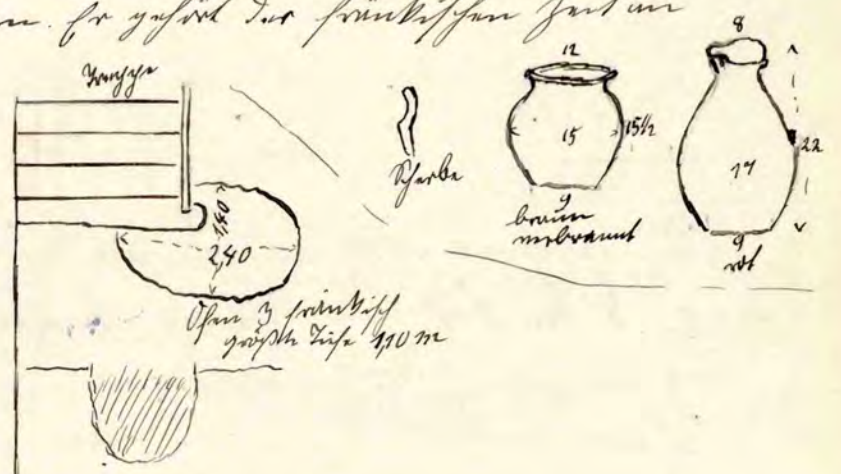 n. Er gehört der fränkischen Zeit an
Treppe
1,40
2,40
Ofen 3 fränkisch
größte Tiefe 1,10 m
Scherbe
12
15
15 1/2
9
braun
verbrannt
8
17
22
9
rot